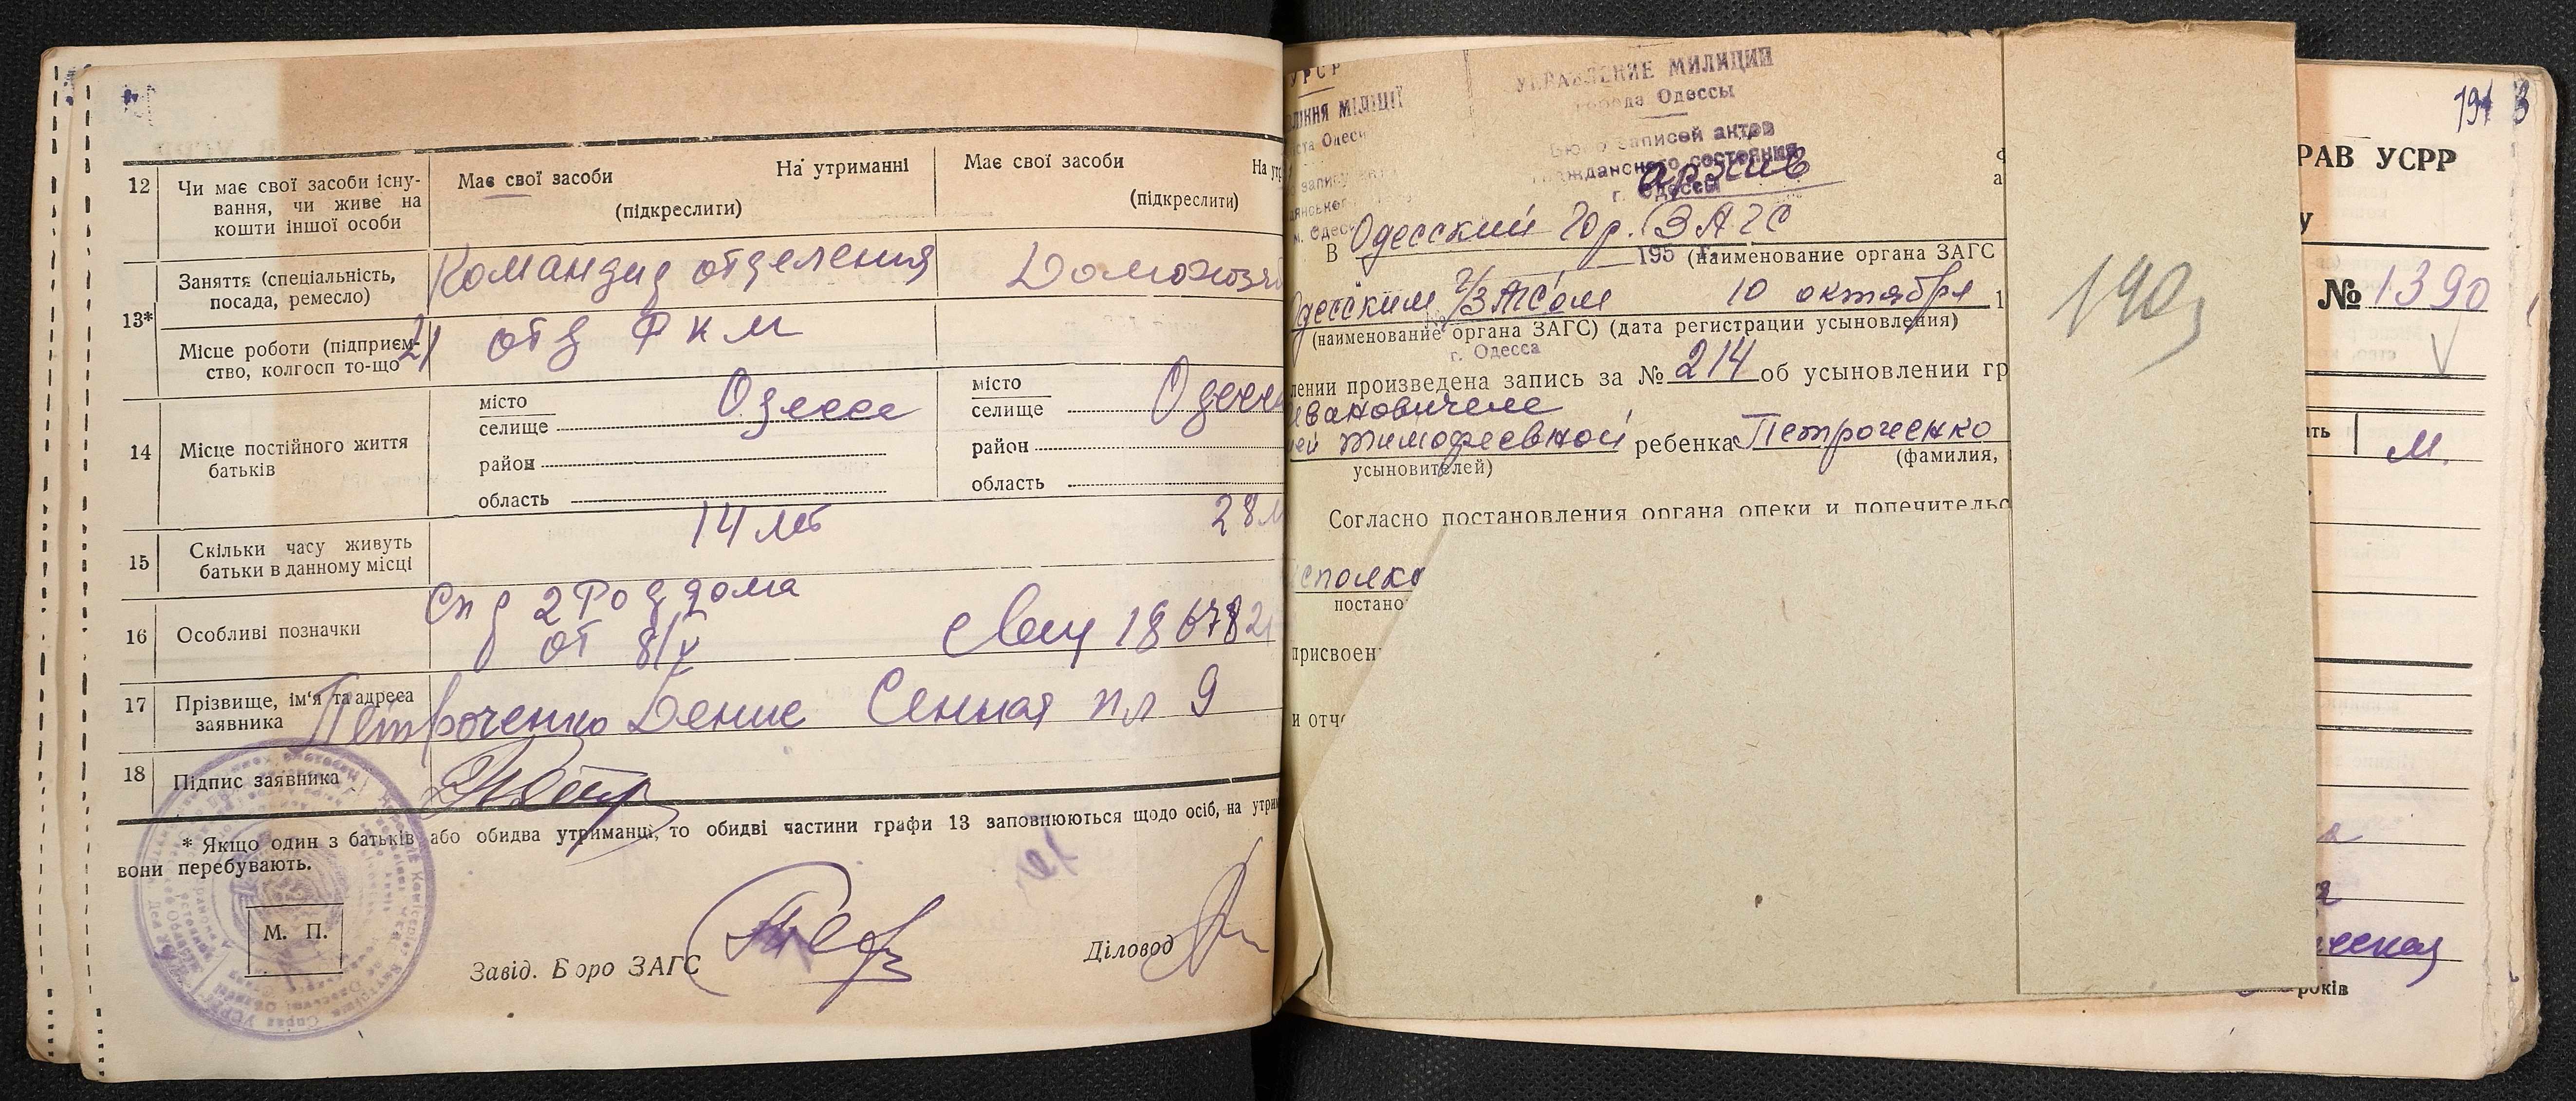 12 Чи має свої засоби існу-
вання, чи живе на
кошти іншої особи
Має свої засоби На утриманні
(підкреслити)
Має свої засоби На утр
(підкреслити)
13*
Заняття (спеціальність,
посада, ремесло)
Командир отделения Домохозяй
Місце роботи (підприєм-
ство, колгосп то-що
21 отд Р К М
14 Місце постійного життя
батьків
місто
селище Одесса
район
область
місто
селище Одесса
район
область
15 Скільки часу живуть
батьки в данному місці
14 лет 28 л
16 Особливі позначки
Спр 2 Роддома
от 8/X
17 Прізвище, ім'я та адреса
заявника Петроченко Денис Сенная пл 9
18 Підпис заявника
* Якщо один з батьків або обидва утриманці, то обидві частини графи 13 заповнюються щодо осіб, на утрим
вони перебувають.
М. П.
Завід. Бюро ЗАГС
Діловод
УРСР
ЛІННЯ МІЛІЦІЇ
УПРАВЛЕНИЕ МИЛИЦИИ
города Одессы
Бюро записей актов
гражданского состояния
г. Одессы
архив
В Одесский Гор. ЗАГС
195 г. (наименование органа ЗАГС
Одесским г/ЗАГСом 10 октября 1
(наименование органа ЗАГС) (дата регистрации усыновления)
г. Одесса
лении произведена запись за № 214 об усыновлении гр
Ивановичем
ей Тимофеевной ребенка Петроченко
усыновителей) (фамилия,
Согласно постановления органа опеки и попечительс
сполко
постано
присвоен
и отч
190
191 3
РАВ УСРР
У
№ 1390
ть М.
еская
років